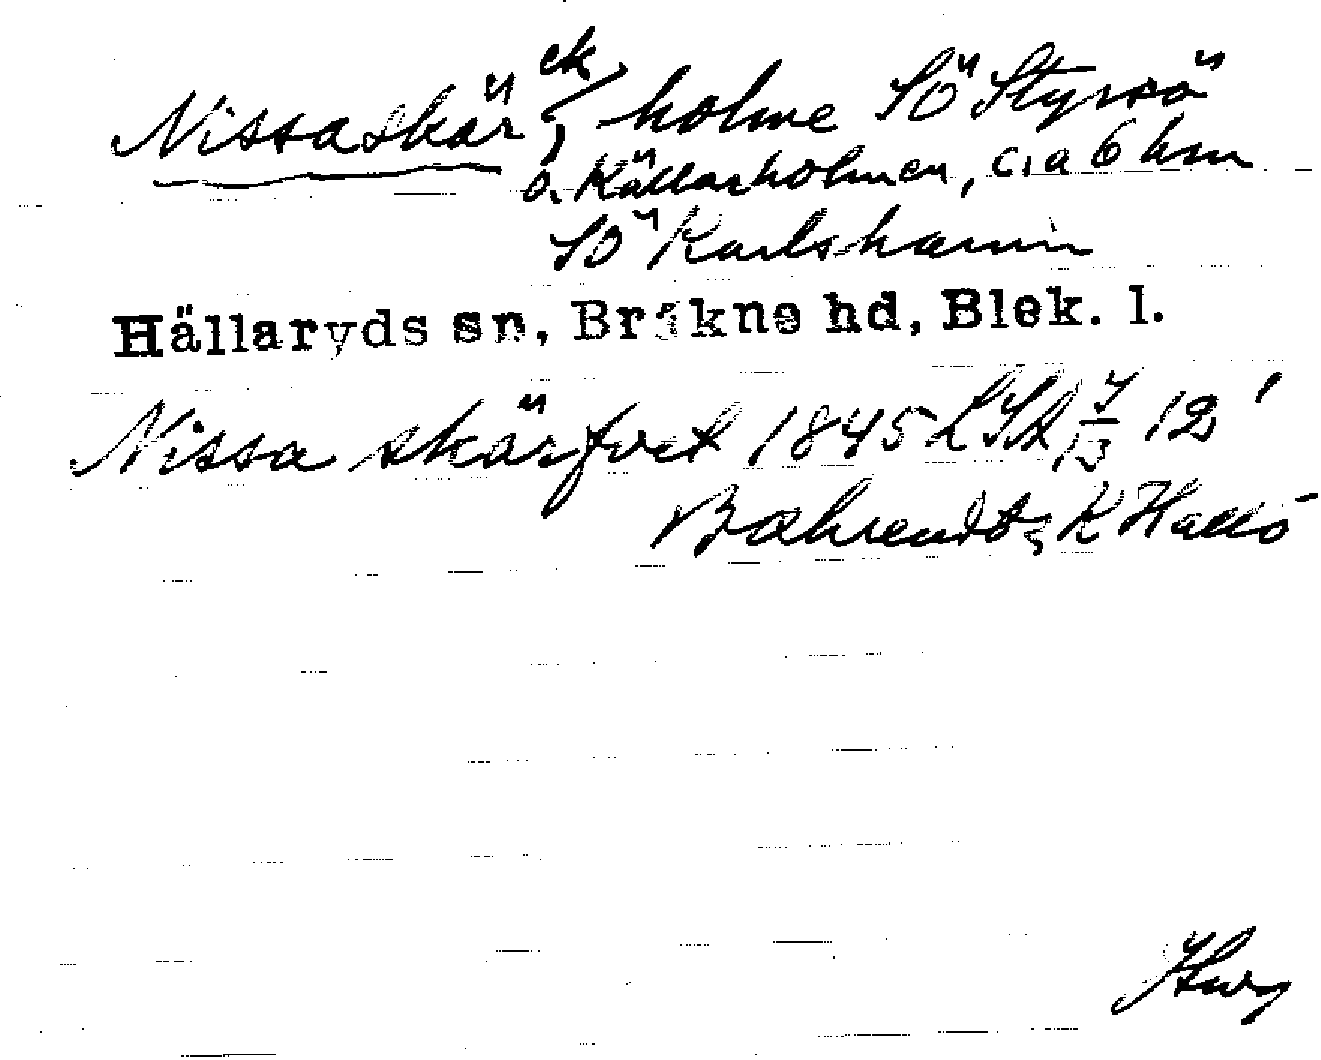 Nissaskär, ek holme SÖ Styrsö
o. Källarholmen, c:a 6 km
SÖ Karlshamn
Hällaryds sn, Bräkne hd, Blek. l.
Nissa skärfvet 1845 LSA 12
Bæhrendtz K Hallö